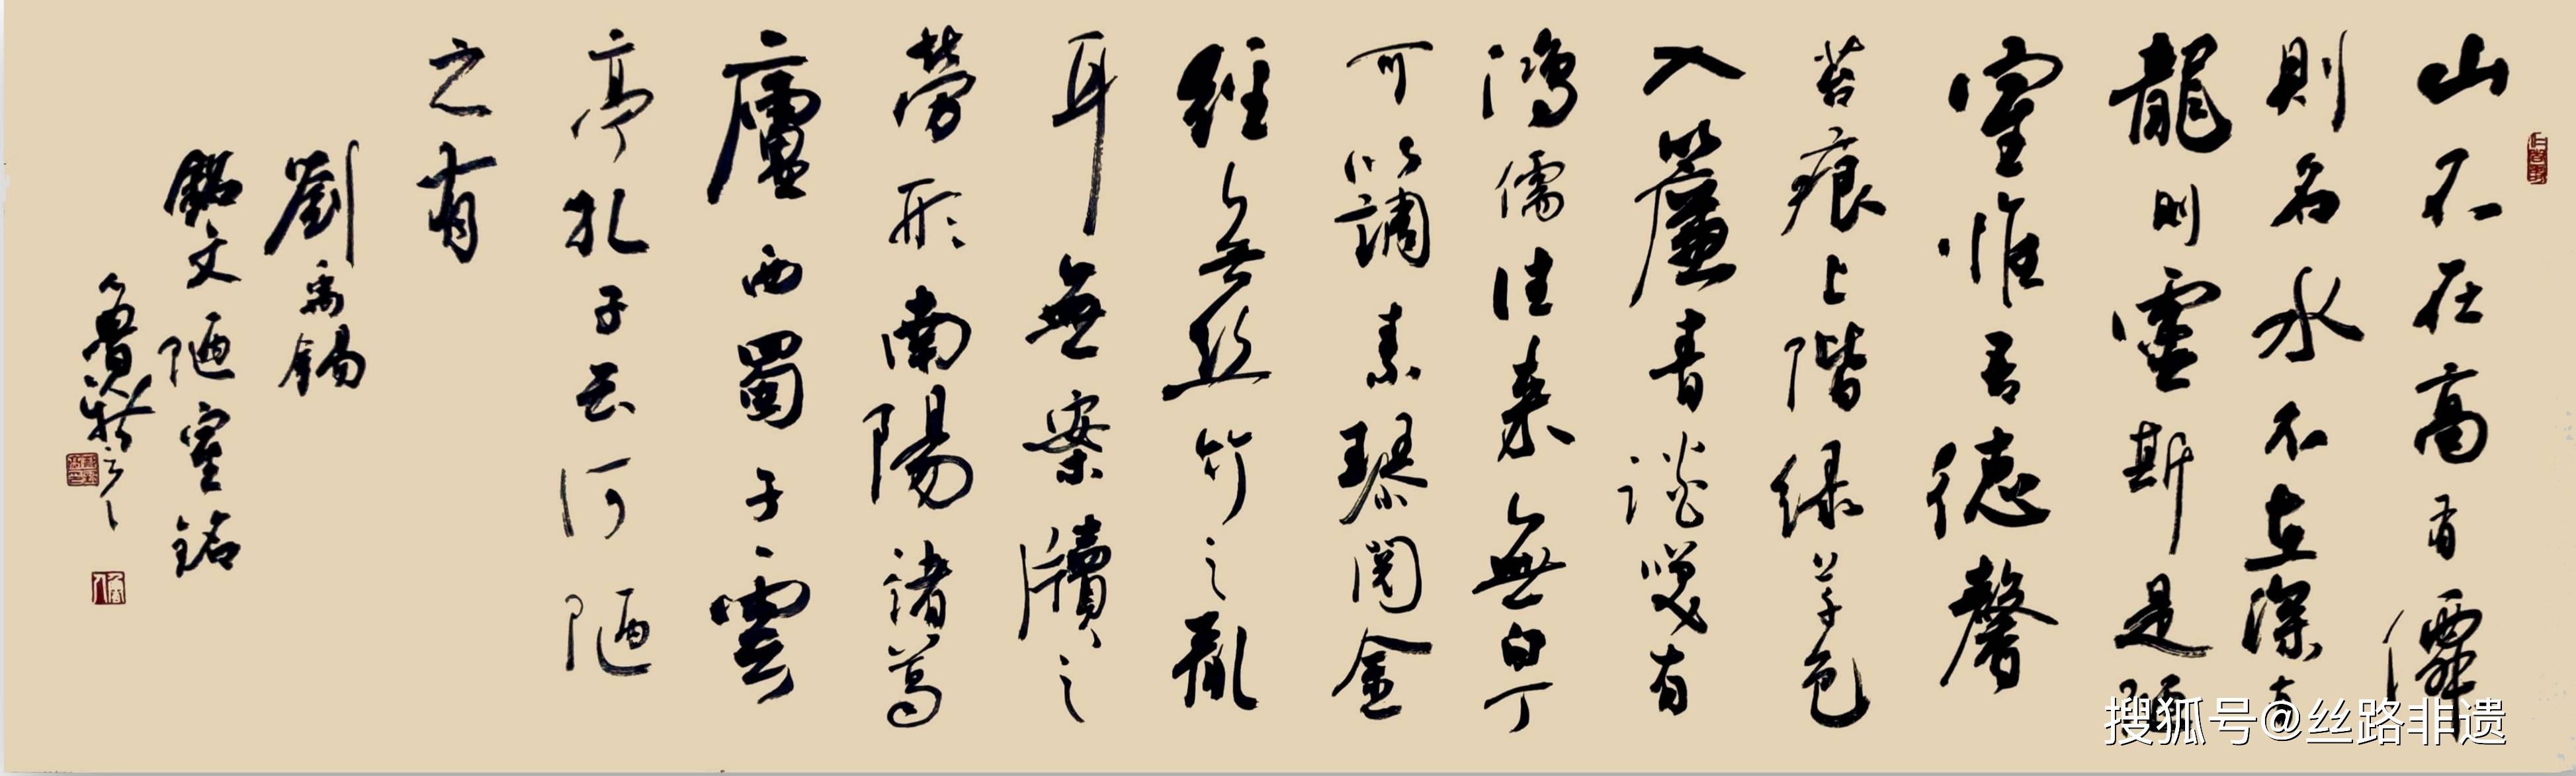 山不在高有僊
則名水不在深有
龍則靈斯是陋
室惟吾德馨
苔痕上階緑草色
入簾青談笑有
鴻儒往来無白丁
可以調素琴閱金
經無絲竹之亂
耳無案牘之
勞形南陽諸葛
廬西蜀子雲
亭孔子云何陋
之有
劉禹錫
文陋室銘
搜狐号@丝路非遗